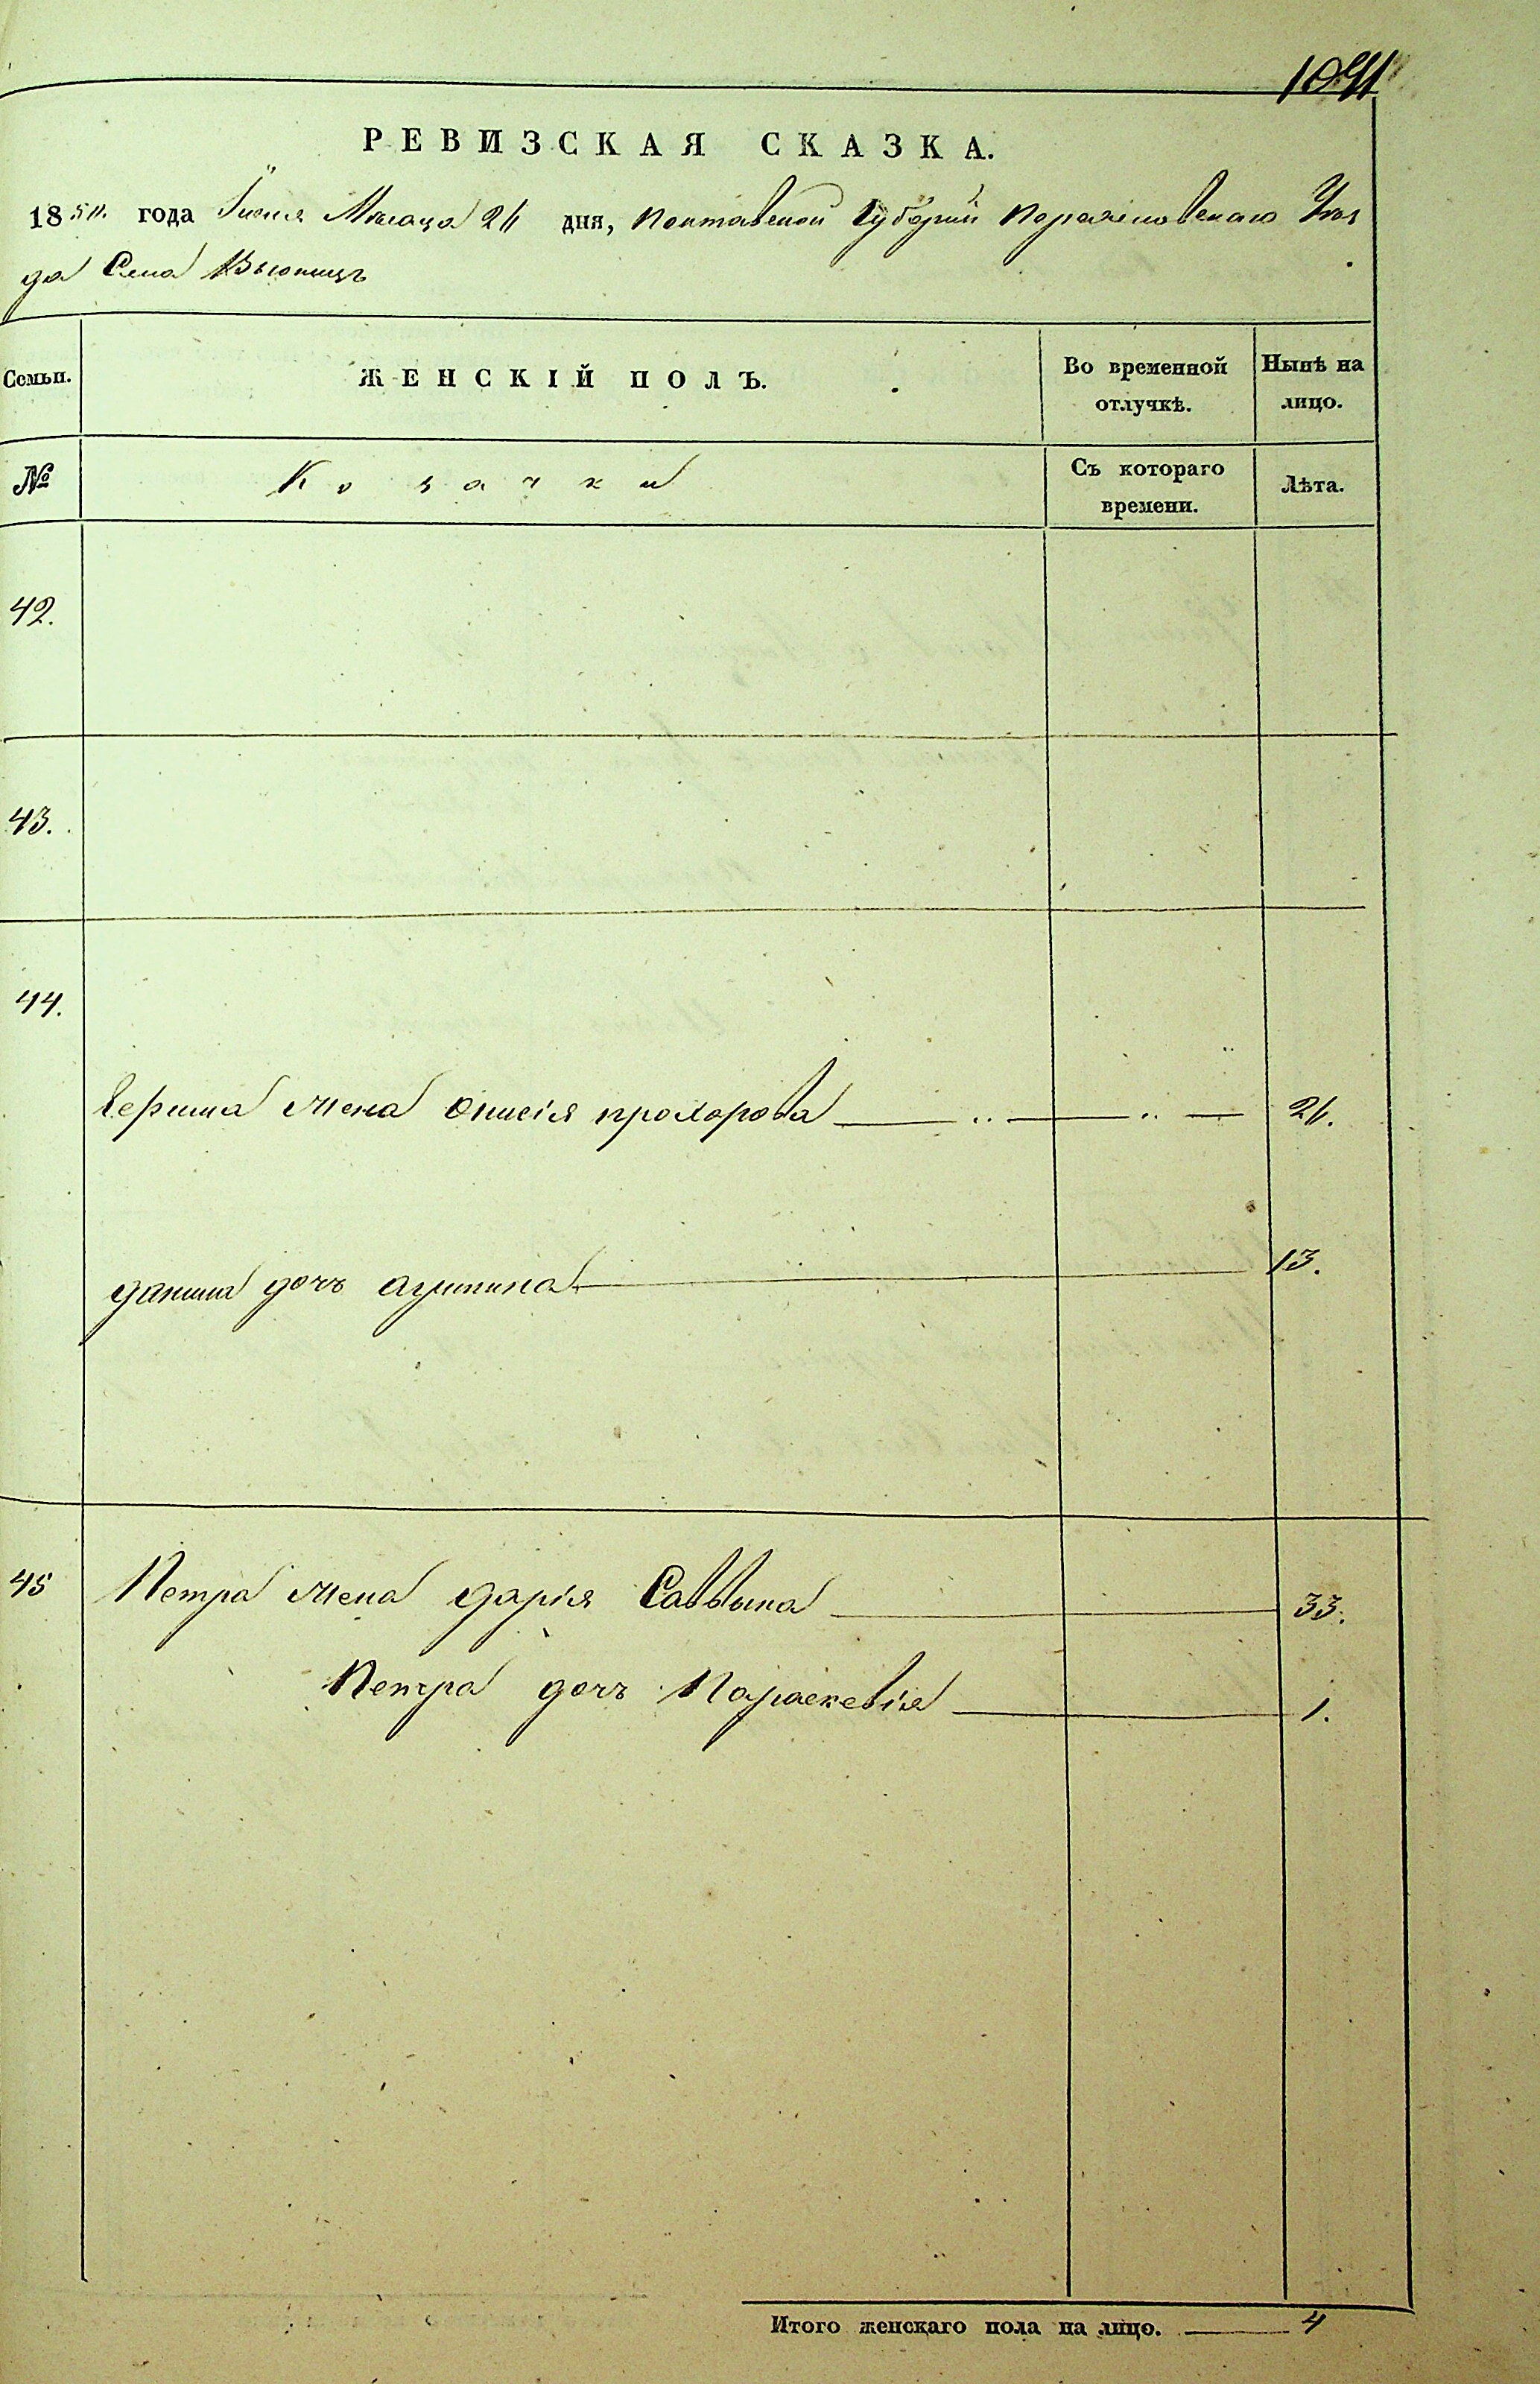 1091
РЕВИЗСКАЯ СКАЗКА.
1850. года Іюня Месяца 26 дня, Полтавской Губерніи Переяславскаго Уѣз
да Села Вьюницъ
Семьи. ЖЕНСКІЙ ПОЛЪ. Во временной отлучкѣ. Нынѣ на лицо.
№ Козачки Съ котораго времени. Лѣта.
42.
43.
44.
жена Онисія прохорова 26.
данила дочь агрипина 13.
45 Петра жена дарія Саввына 33.
Петра дочь Параскевія 1.
Итого женскаго пола на лицо. 4